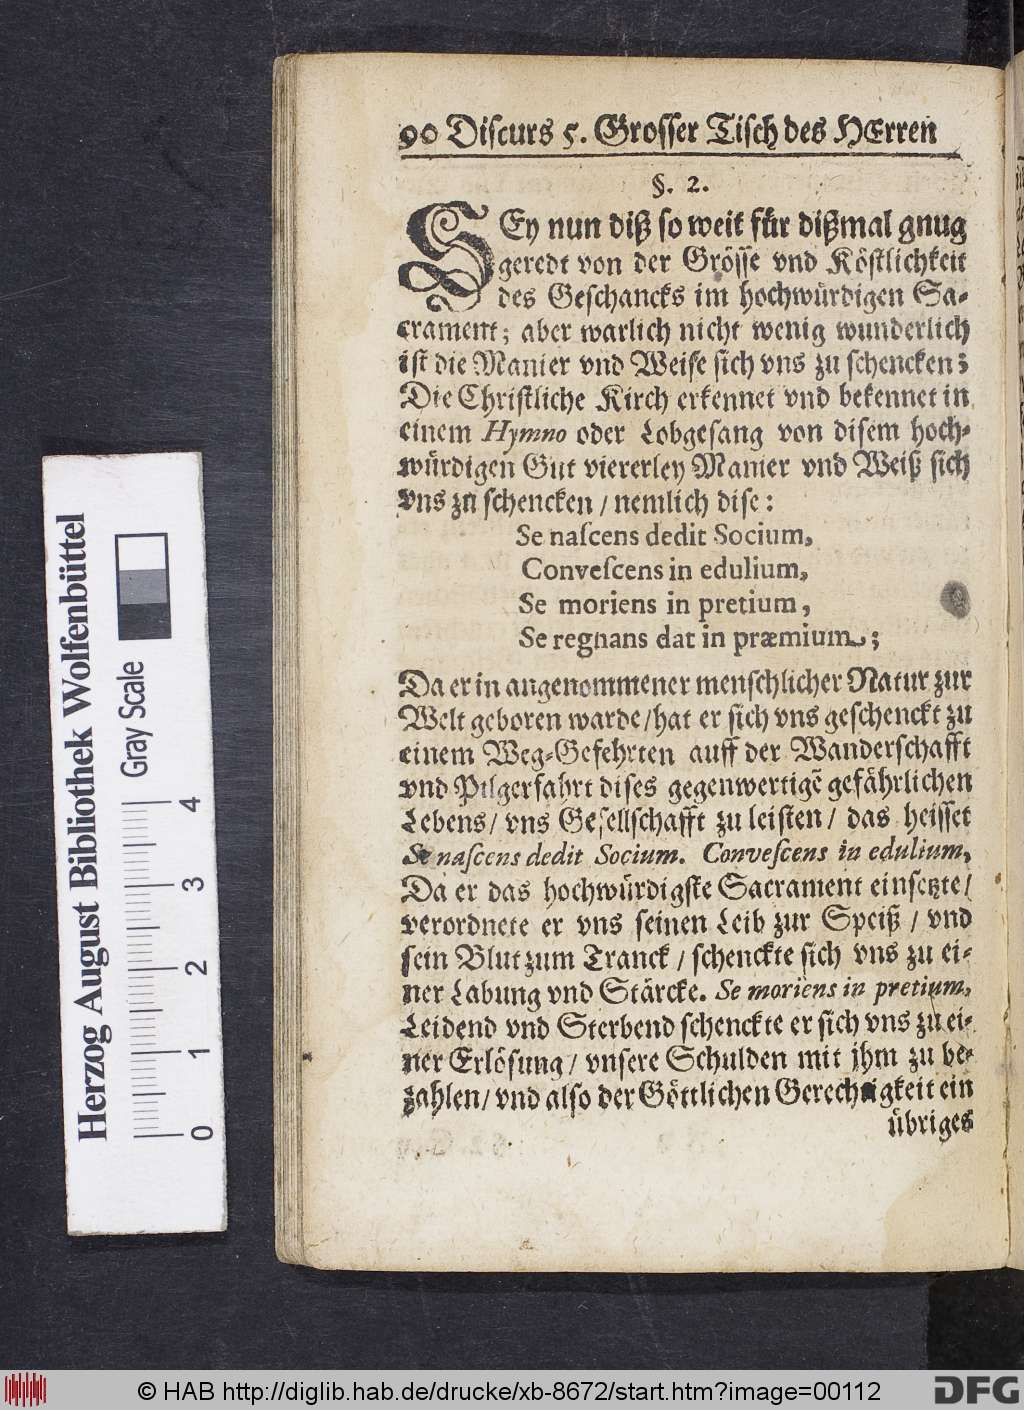 90 Diſcurs 5. Groſſer Tiſch des HErren
§. 2.
SEy nun diß ſo weit für dißmal gnug
geredt von der Gröſſe vnd Köſtlichkeit
des Geſchancks im hochwürdigen Sa-
crament; aber warlich nicht wenig wunderlich
iſt die Manier vnd Weiſe ſich vns zu ſchencken;
Die Chriſtliche Kirch erkennet vnd bekennet in
einem Hymno oder Lobgeſang von diſem hoch-
würdigen Gut viererley Manier vnd Weiß ſich
vns zu ſchencken / nemlich diſe:
Se naſcens dedit Socium,
Conveſcens in edulium,
Se moriens in pretium,
Se regnans dat in præmium;
Da er in angenommener menſchlicher Natur zur
Welt geboren warde / hat er ſich vns geſchenckt zu
einem Weg-Gefehrten auff der Wanderſchafft
vnd Pilgerfahrt diſes gegenwertigẽ gefährlichen
Lebens / vns Geſellſchafft zu leiſten / das heiſſet
Se naſcens dedit Socium. Conveſcens in edulium,
Da er das hochwürdigſte Sacrament einſetzte /
verordnete er vns ſeinen Leib zur Speiß / vnd
ſein Blut zum Tranck / ſchenckte ſich vns zu ei-
ner Labung vnd Stärcke. Se moriens in pretium,
Leidend vnd Sterbend ſchenckte er ſich vns zu ei-
ner Erlöſung / vnſere Schulden mit jhm zu be-
zahlen / vnd alſo der Göttlichen Gerechtigkeit ein
übriges
Herzog August Bibliothek Wolfenbüttel
Gray Scale
0 1 2 3 4
© HAB http://diglib.hab.de/drucke/xb-8672/start.htm?image=00112
DFG